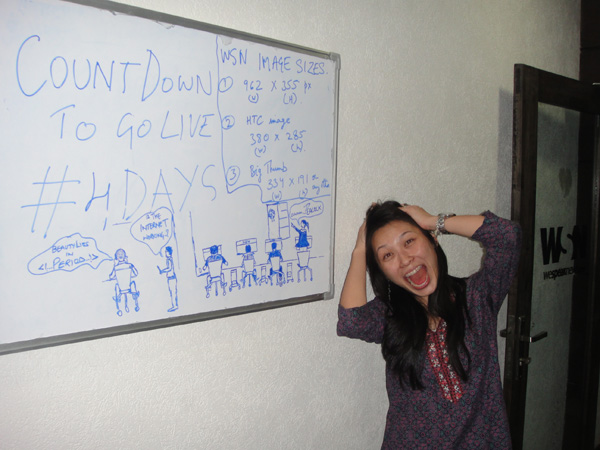 COUNTDOWN
TO GO LIVE
#4 DAYS
WSN IMAGE SIZES.
① 962 x 355 px
(w) (H)
② HTC image
380 x 285
(w) (h)
③ Big Thumb
334 x 191
(w)
IS THE
INTERNET
WORKING?
IN
PERIOD
W